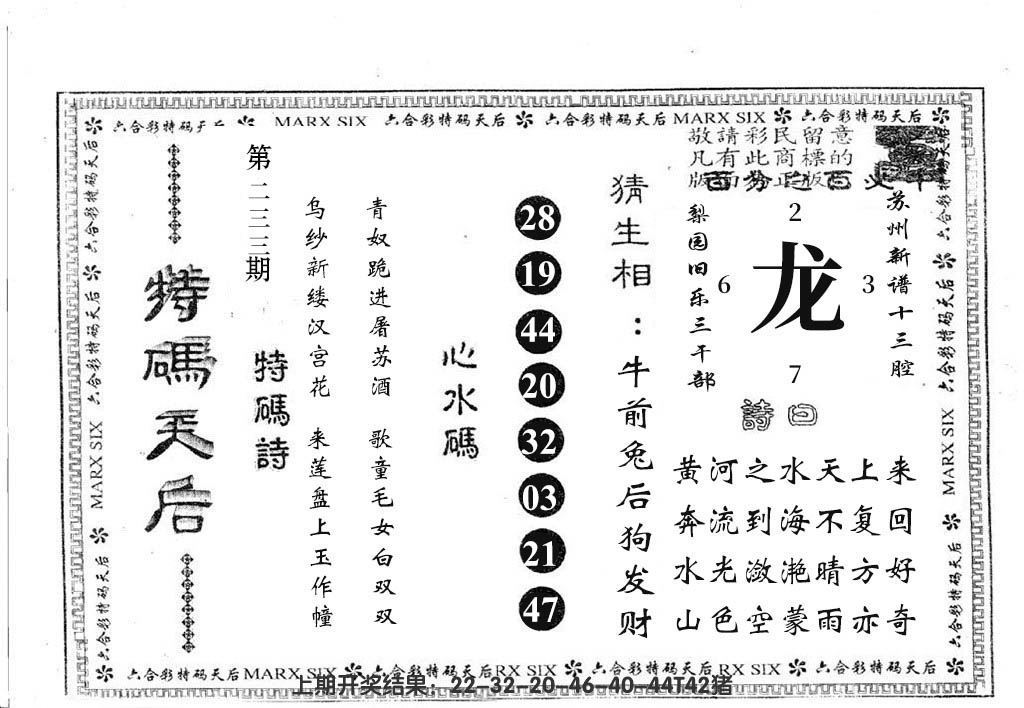 六合彩特码天后 MARX SIX 六合彩特码天后 六合彩特码天后 MARX SIX 六合彩特码天后
敬請彩民留意
凡有此商標的
版面为正版
百分之百
苏州新谱十三腔
2
6 龙 3
7
梨园旧乐三千部
詩曰
黄河之水天上来
奔流到海不复回
水光潋滟晴方好
山色空蒙雨亦奇
猜生相：牛前兔后狗发财
28
19
44
20
32
03
21
47
心水碼
青奴跪进屠苏酒 歌童毛女白双双
乌纱新缕汉宫花 来莲盘上玉作幢
特碼詩
第二二三三期
特碼天后
六合彩特码天后 MARX SIX 六合彩特码天后
六合彩特码天后 六合彩特码天后 MARX SIX 六合彩特码天后
六合彩特码天后MARX SIX 六合彩特码天后RX SIX 六合彩特码天后RX SIX 六合彩特码天后
上期开奖结果：22-32-20-46-40-44T42猪